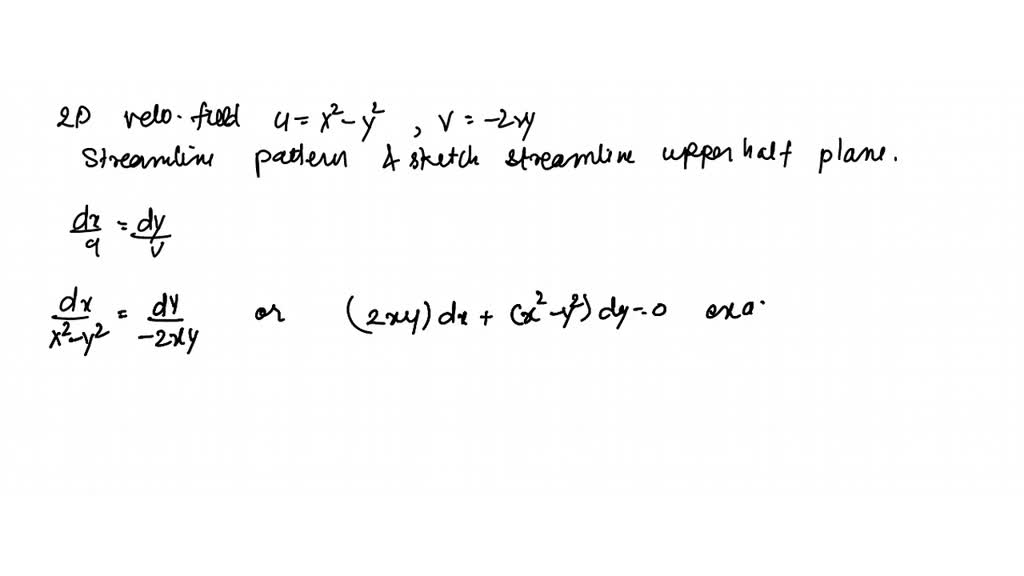 2D velo. field u = x² - y² , v = -2xy
Streamline pattern & sketch streamline upper half plane.
dx/u = dy/v
dx/x²-y² = dy/-2xy or (2xy) dx + (x² - y²) dy = 0 exa